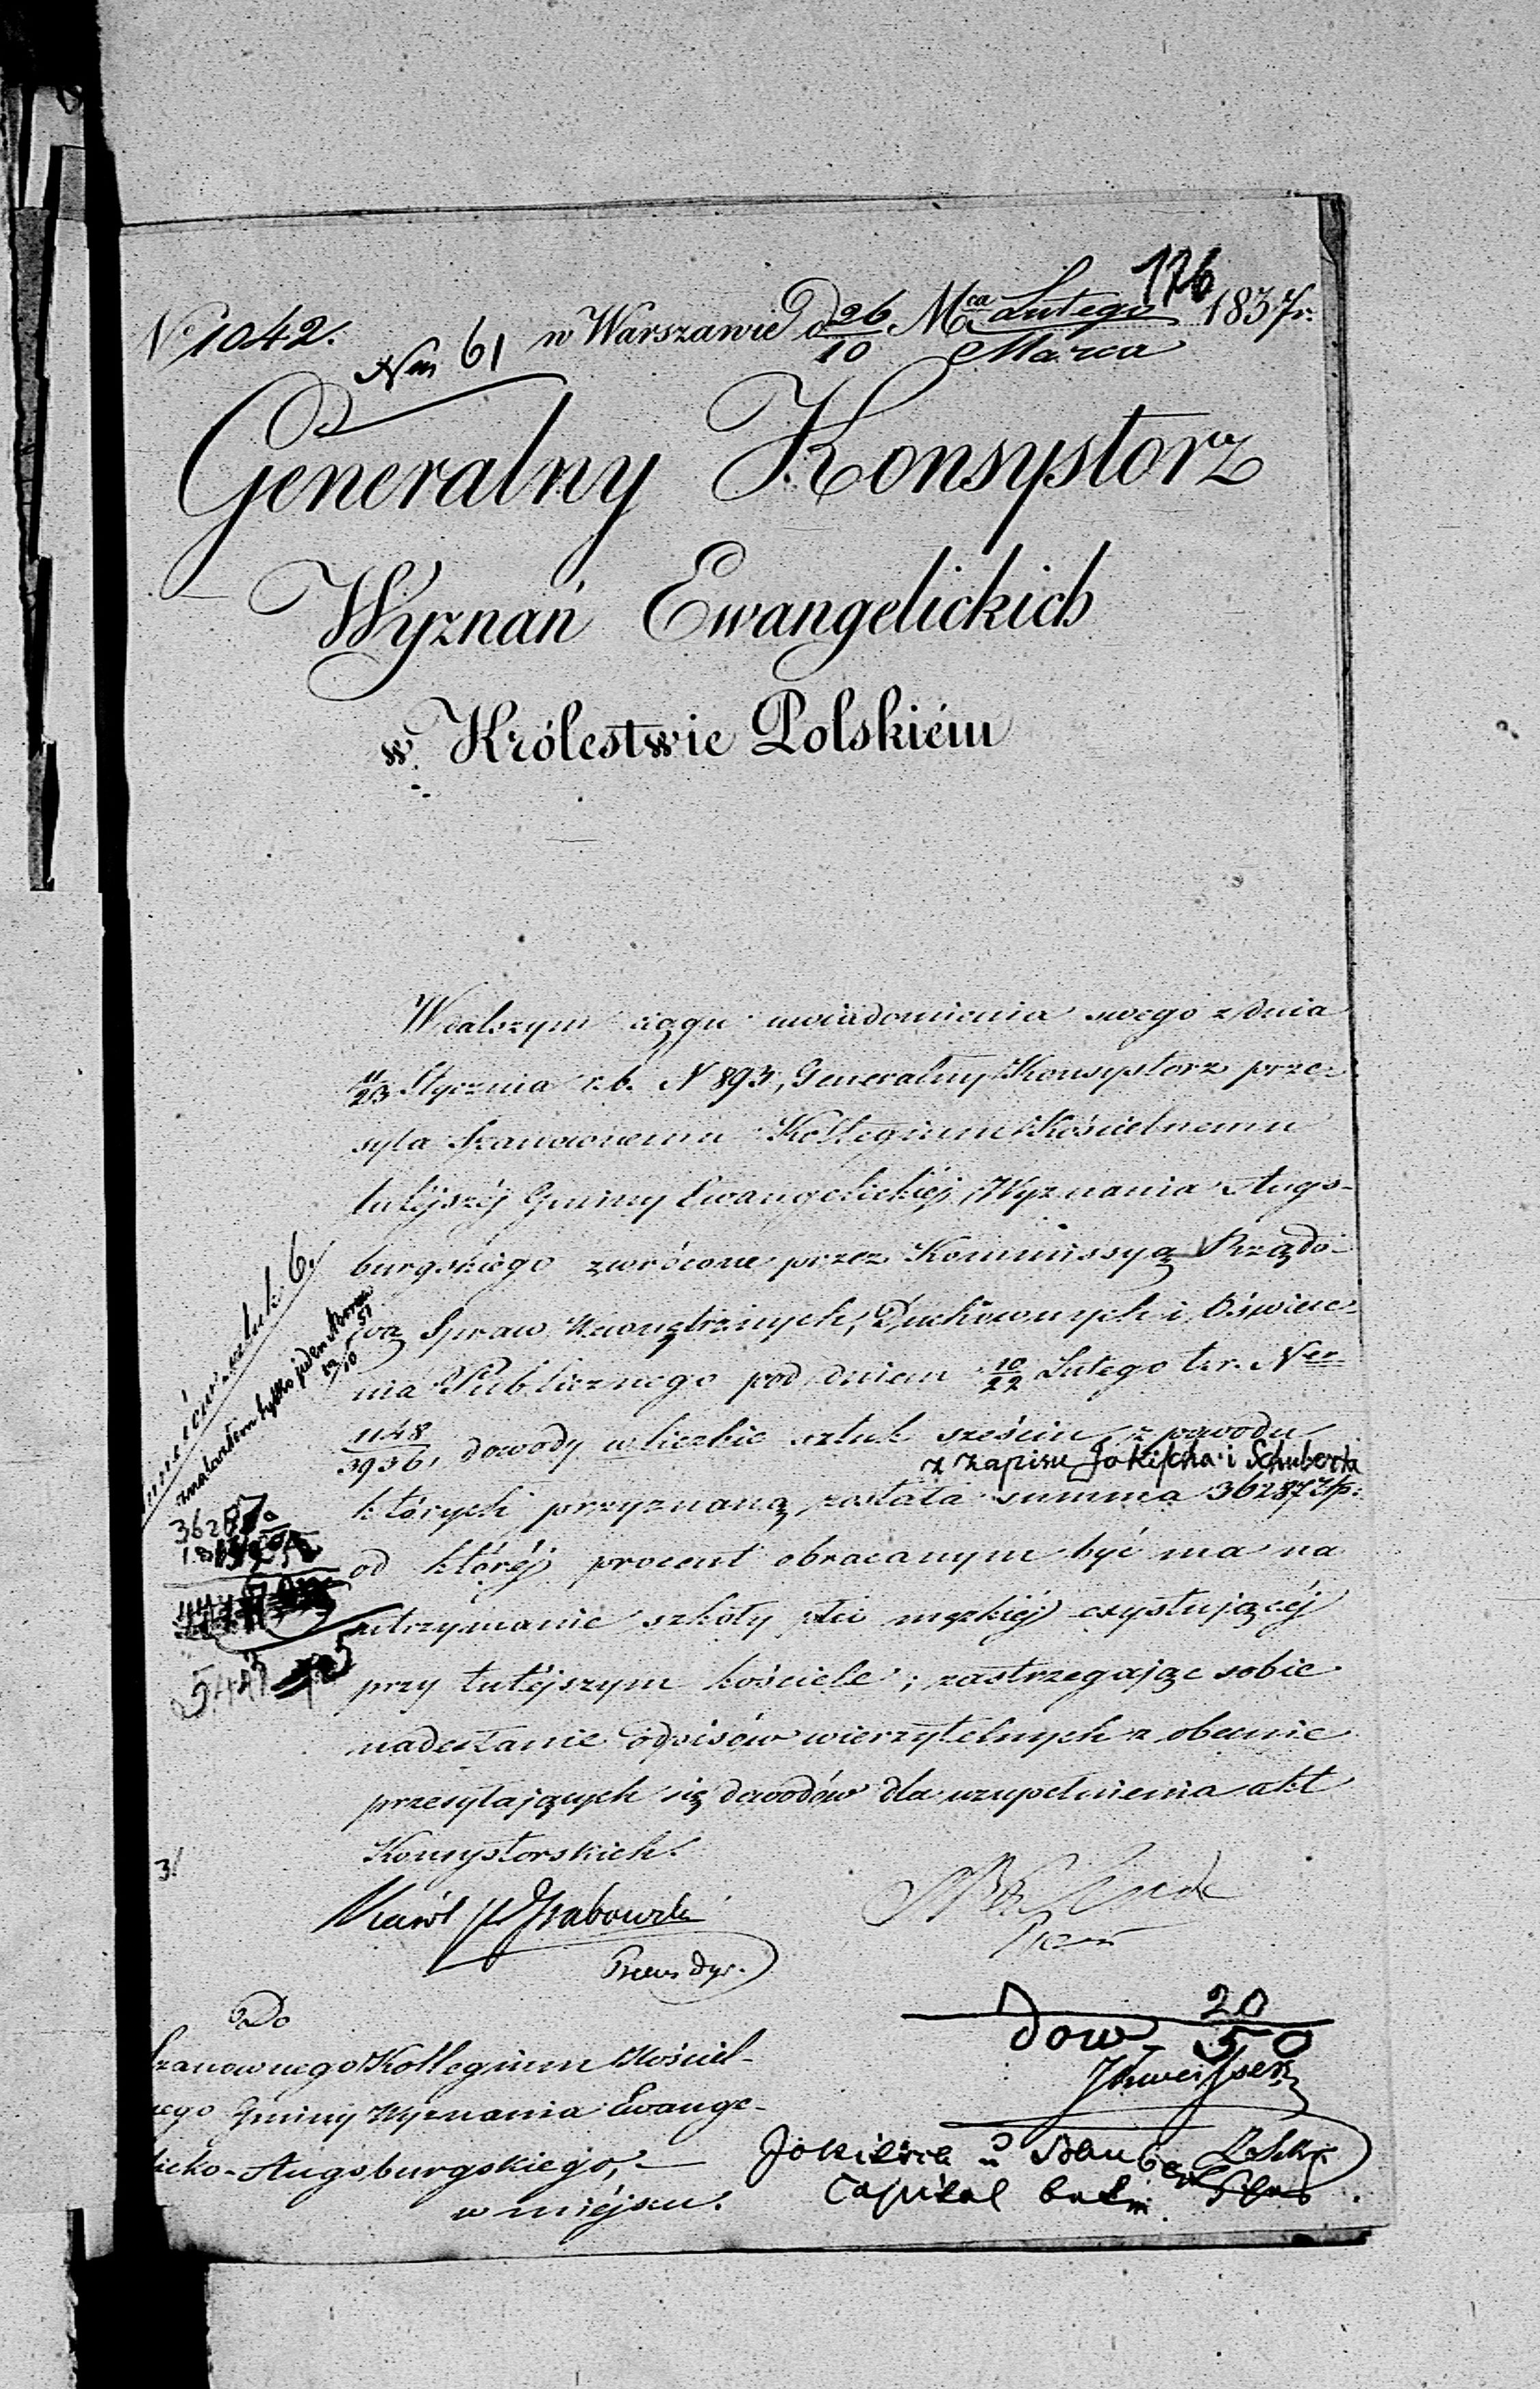 176
No 1042. w Warszawie d 26/10 Mca Lutego/Marca 1837 r.
Nr 61
Generalny Konsystorz
Wyznań Ewangelickich
w Królestwie Polskiém
W dalszym ciągu uwiadomienia swego z dnia
11/23 Stycznia r.b. N 893, Generalny Konsystorz prze-
syła Szanownemu Kollegium Kościelnemu
tutéjszéj Gminy Ewangelickiéj Wyznania Augs-
burgskiego zwrócone przez Kommissyą Rządo-
wą Spraw Wewnętrznych, Duchownych i Oświece-
nia Publicznego pod dniem 10/22 Lutego t.r. Ner
1148/3936, dowody w liczbie sztuk sześciu z powodu
z zapisu Jokischa i Schuberta
których przyznaną została summa 36287 złp.
od któréj procent obracanym być ma na
utrzymanie szkoły płci męzkiéj exystującéj
przy tutéjszym kościele; zastrzegając sobie
nadesłanie odpisów wierzytelnych z obecnie
przesyłających się dowodów dla uzupełnienia akt
Konsystorskich.
sztuk 6.
znalazłem tylko jeden
36287
3/
Karól Grabowski
Do
Szanownego Kollegium Kościel-
nego Gminy Wyznania Ewange-
licko-Augsburgskiego,
w miéjscu.
dow. 20/50
Capital